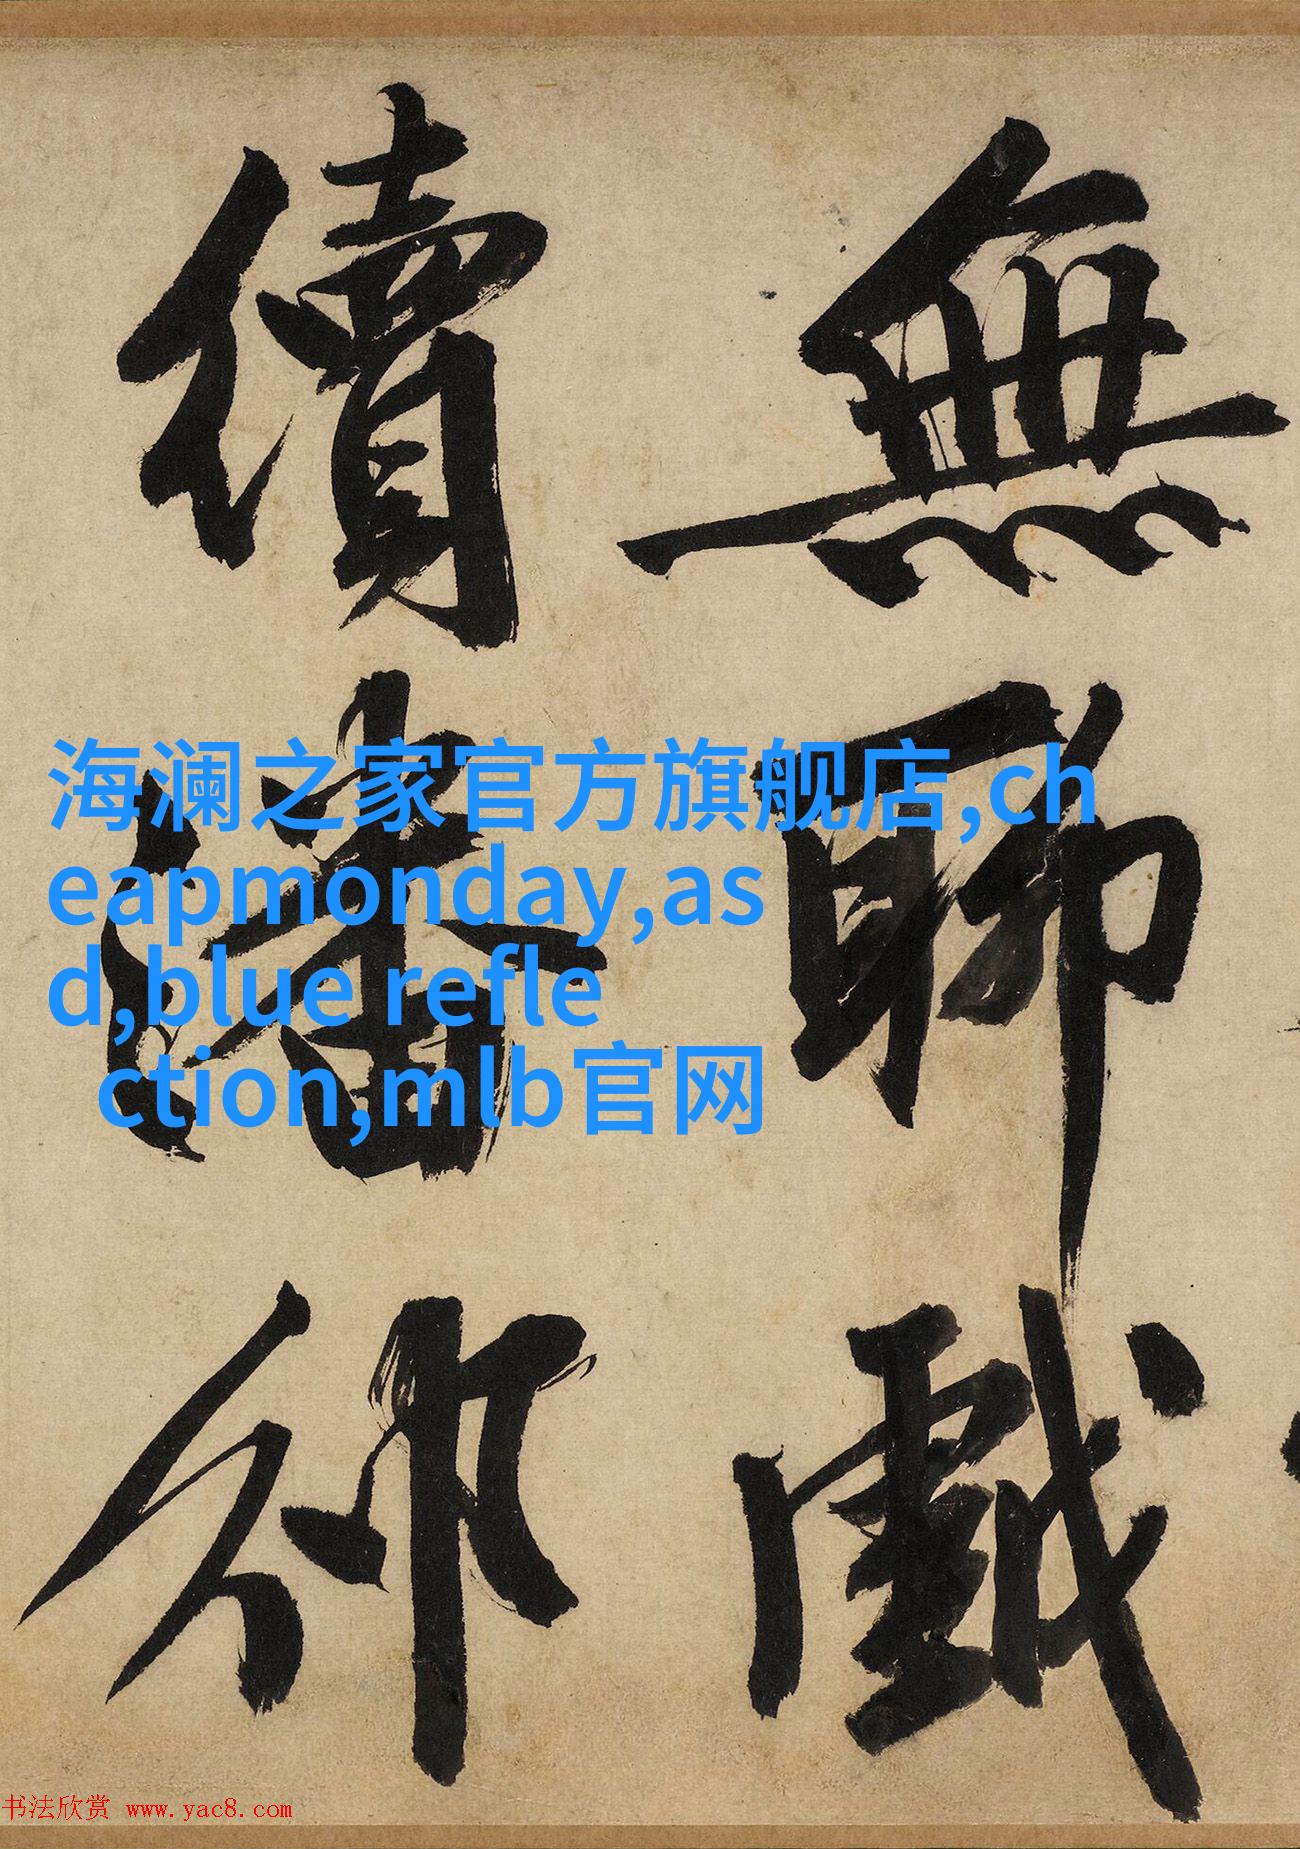 無聊戲
續潘邠
海澜之家官方旗舰店,ch
eapmonday,as
d,blue refle
ction,mlb官网
书法欣赏 www.yac8.com